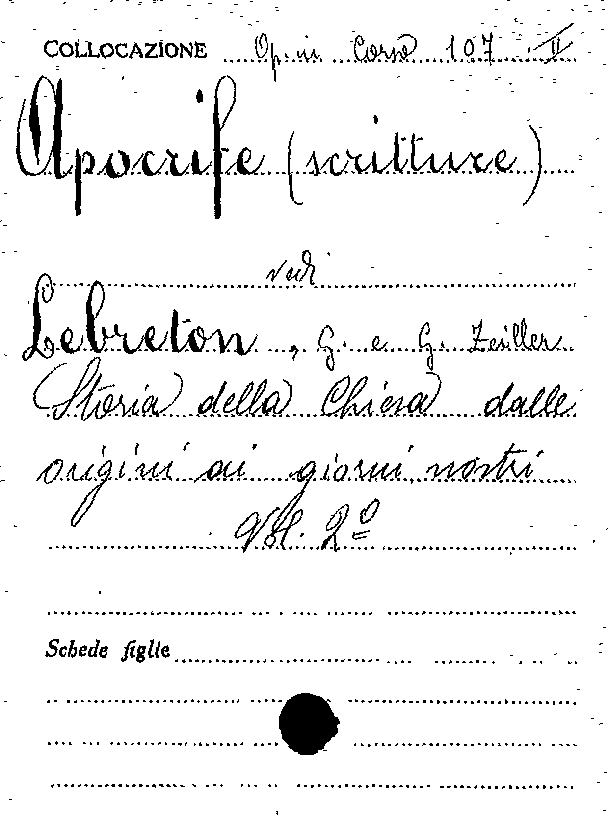 COLLOCAZIONE Op. in Corso 107 II
Apocrife (scritture)
vedi
Lebreton, G. e G. Zeiller
Storia della Chiesa dalle
origini ai giorni nostri
Vol. 2º
Schede figlie